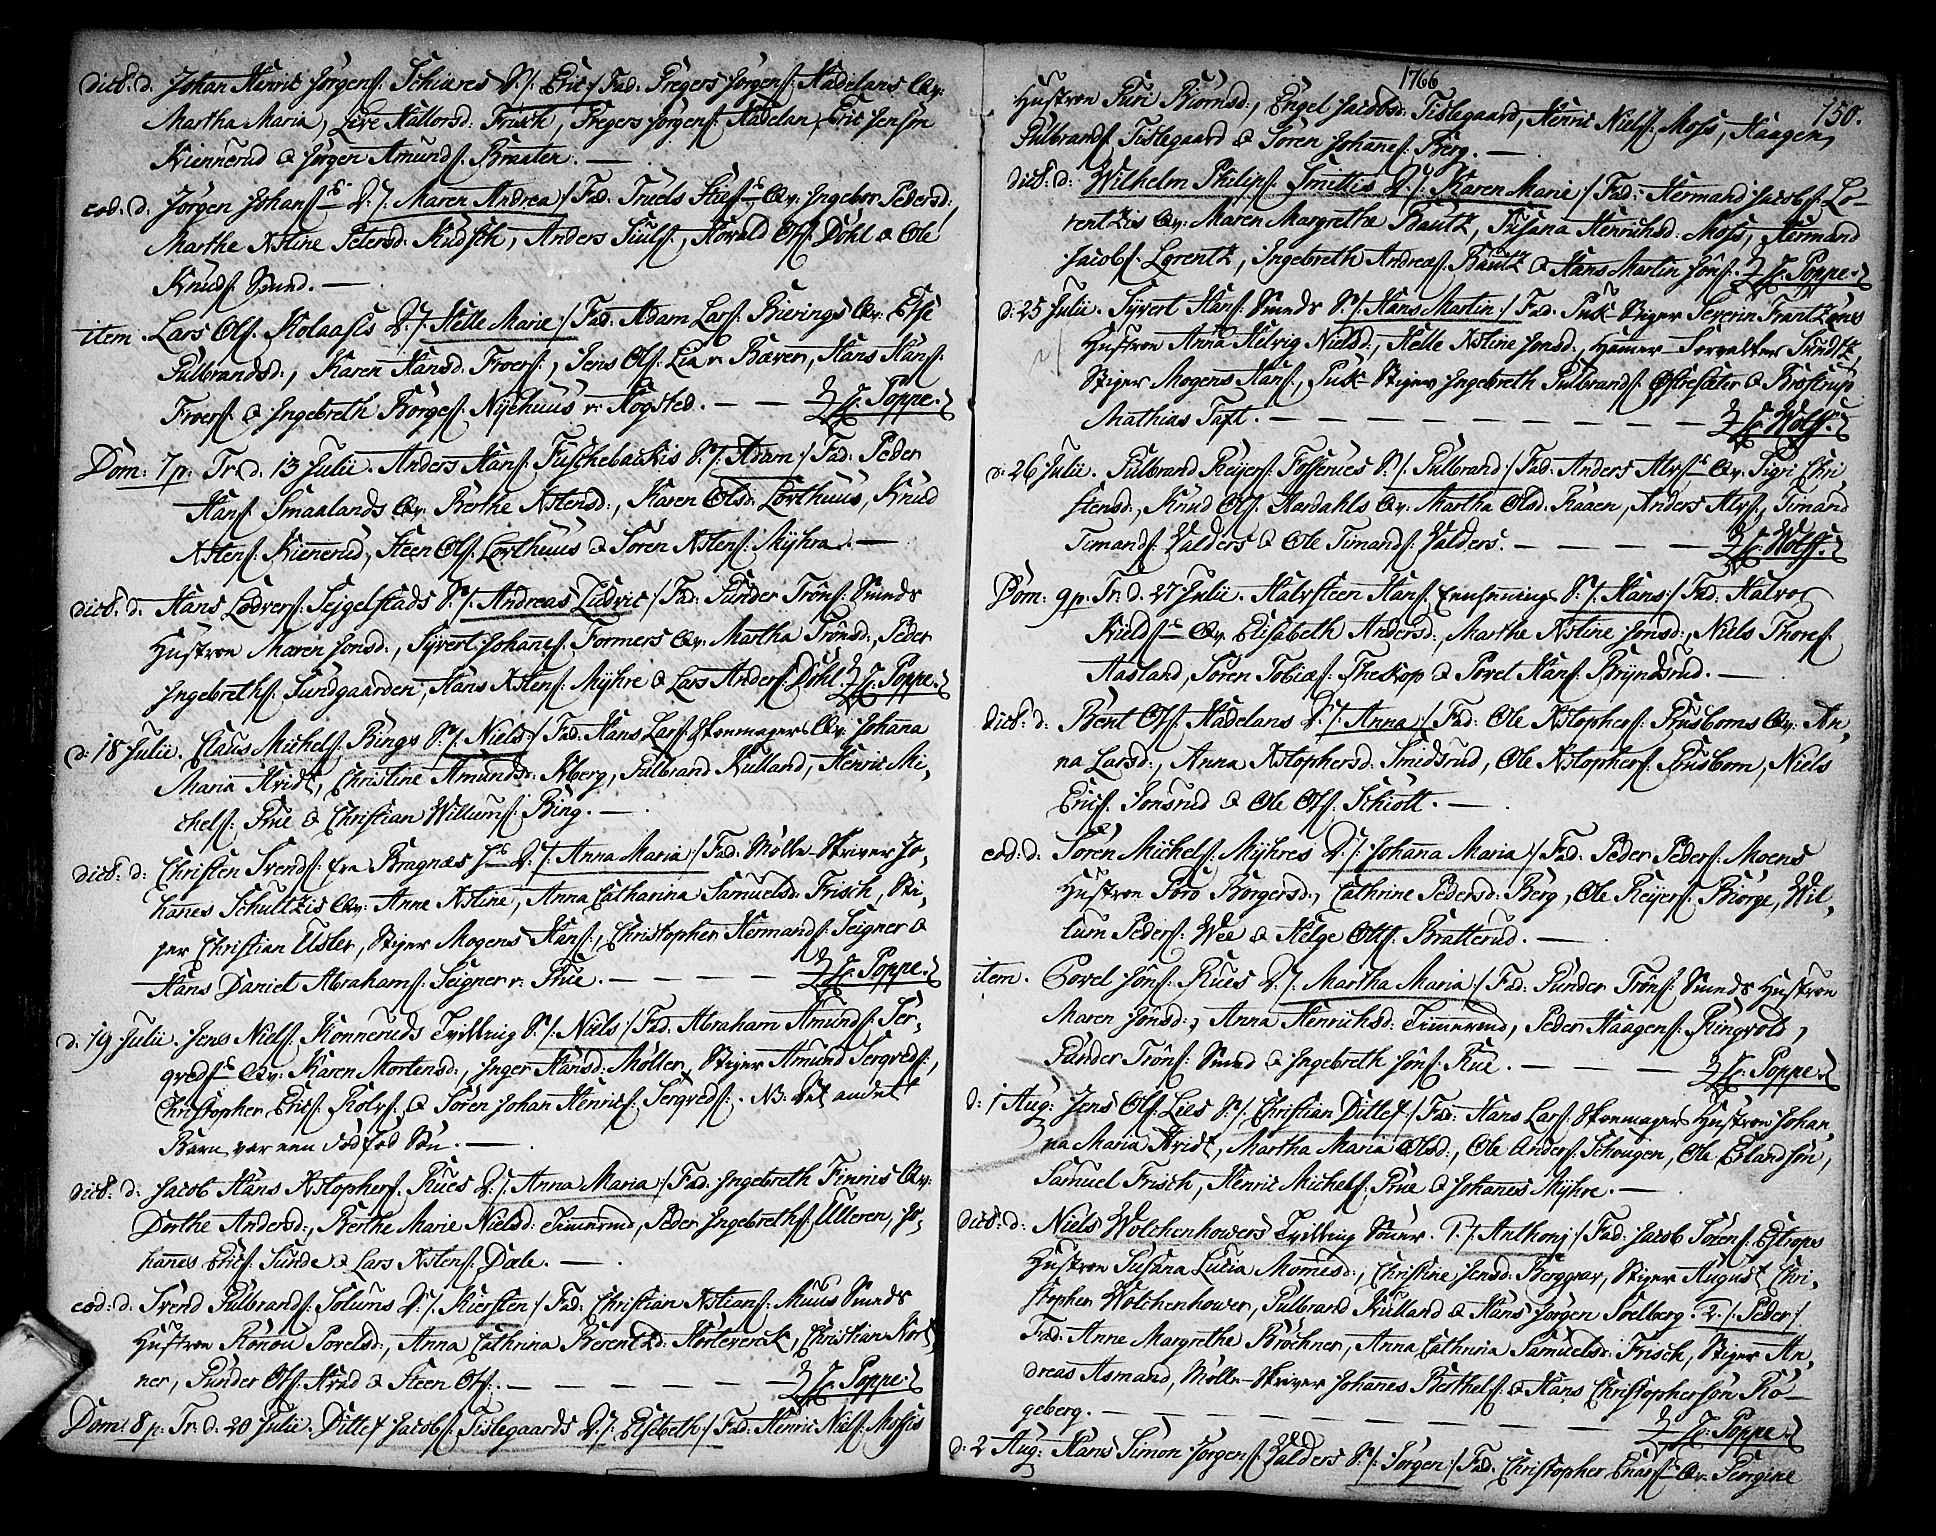 dict: d. Johan Henric Jørgens: Schiares S./: Eric :/ Fad: Gregers Jørgens: Hadelans Qv:
Martha Maria, Live Hallorsd: Frisch, Gregers Jørgens: Hadelan, Eric Jensøn
Kiennerud & Jørgen Amunds: Braaten. —
eod: d. Jørgen Johans: D./: Maren Andrea :/ Fad: Truels Qv: Ingebor Pedersd:,
Marthe Kstine Petersd: Kudsch, Anders Siuls:, Harald Ols: Døhl & Ole
Knuds: Smed. —
item. Lars Ols: Kolaasis D./: Helle Marie :/ Fad: Adam Lars: Bierings Qv: Else
Gulbrandsd:, Karen Hansd: Froers:, Jens Ols: Lia v. Bæver, Hans Hans:
Froers: & Ingebreth Børges: Nyehuus v. Kogsted. — — J: Poppe.
Dom: 7 p: Tr: d. 13 Julii. Anders Hans: Fuschebackis S./: Adam :/ Fad: Peder
Hans: Smaalands Qv: Berthe Kstensd:, Karen Olsd: Lørthuus, Knud
Kstens: Kiennerud, Steen Ols: Lørthuus & Søren Kstens: Myhra. —
dict: d. Hans Lødvers: Sejgelstads S./: Andreas Ludvic :/ Fad: Gunder Trøns: Smeds
Hustroe Maren Jonsd:, Syvert Johanes: Formers Qv: Martha Trønsd:, Peder
Ingebreths: Sundgaarden, Hans Kstens: Myhre & Lars Anders: Døhl. J: Poppe.
d. 18 Julii. Claus Michels: Bings S./: Nield :/ Fad: Hans Lars: Skoemagers Qv: Johana
Maria Hvidt, Christine Amundsd: Aberg, Gulbrand Kulland, Henric Mi,
chels: Grue & Christian Willums: Bing. —
dict: d: Christen Svends: fra Bragnæs D./: Anna Maria :/ Fad: Mølle-Skriver Jo,
hanes Schultzis Qv: Anne Kstine, Anna Catharina Samuelsd: Frisch, Sti,
ger Christian Usler, Stiger Mogens Hans:, Christopher Hermands: Seigner &
Hans Daniel Abrahams: Seigner v: Grue. — — — J: Poppe.
d. 19 Julii. Jens Niels: Konneruds Tvilling S./: Niels :/ Fad: Abraham Amunds: Ser,
greds: Qv: Karen Mortensd:, Inger Hansd: Møller, Stiger Amund Sergreds:,
Christopher Erics: Rolv & Søren Johan Henrics: Sergreds:. NB: Det andet
Barn var een dødfød Søn. —
dict: d. Jacob Hans Kstophers: Grues D./: Anna Maria :/ Fad: Ingebreth Finnis Qv:
Dorthe Andersd:, Berthe Marie Nielsd: Timerud, Peder Ingebreths: Ulleren, Jo,
hanes Erics: Lunde & Lars Kstens: Dæle. —
eod: d: Svend Gulbrands: Solums D./: Kiersten :/ Fad: Christian Kstians: Muus Smeds
Hustroe Rønou Povelsd:, Anna Cathrina Berentzd: Hørteverck, Christian Kort
ner, Gunder Ols: Krad & Steen Ols:. — — — J: Poppe.
Dom: 8 p: Tr: d. 20 Julii. Ditlef Jacobs: Tislegaards D./: Elsebeth :/ Fad: Henric Niels: Mossis
1766
150.
Hustroe Guri Biørnsd:, Engel Jacobsd: Tislegaard, Henric Niels: Moss, Haagen
Gulbrands: Tislegaard & Søren Johanes: Berg. —
dict: d: Wilhelm Philips: Smittis D./: Karen Marie :/ Fad: Hermand Jacobs: Lo-
rentzis Qv: Maren Margretha Bautz, Susana Henrichsd: Moss, Hermand
Jacobs: Lorentz, Ingebreth Andreæs: Bautz & Hans Martin Jøns: J: Poppe.
d: 25 Julii. Syvert Hans: Smeds S./: Hans Martin :/ Fad: Puk-Stiger Severin Frantzøns
Hustroe Anna Helvig Nielsd:, Helle Kstine Jonsd:, Hamer-Forvalter Sundtz,
Stiger Mogens Hans:, Puk-Stiger Ingebreth Gulbrands: Ostresæter & Brostrup
Mathias Taft. — — — — — J: Wolff.
d: 26 Julii. Gulbrand Reyers: Fosserues S./: Gulbrand :/ Fad: Anders Alvs: Qv: Sigri Chri
stensd:, Knud Ols: Aardahls Qv: Martha Olsd: Raaen, Anders Alvs:, Simand
Simands: Valders & Ole Simands: Valders. — — — J: Wolff.
Dom: 9 p: Tr: d. 27 Julii. Halvsteen Hans: S./: Hans :/ Fad: Halvor
Kields: Qv: Elisabeth Andersd:, Marthe Kstine Jonsd:, Niels Thores:
Aasland, Søren Tobiæs: Theskop & Povel Hans: Bryndsrud. —
dict: d: Bent Ols: Hadelans D./: Anna :/ Fad: Ole Kstophers: Qv: An,
na Larsd:, Anna Kstophersd: Smidsrud, Ole Kstophers:, Niels
Erics: Jonsrud & Ole Ols: Schiøtt. —
eod: d: Søren Michels: Myhres D./: Johana Maria :/ Fad: Peder Peders: Moens
Hustroe Goro Borgersd:, Cathrine Pedersd: Berg, Ole Reyers: Biørge, Wil,
lum Peders: Wee & Helge Ols: Bratterud. —
item. Povel Jøns: Grues D./: Martha Maria :/ Fad: Gunder Trøns: Smeds Hustroe
Maren Jonsd:, Anna Henrichsd: Timerud, Peder Haagens: Ringvold,
Gunder Trøns: Smed & Ingebreth Jøns: Grue. — — — J: Poppe.
d: 1 Aug: Jens Ols: Lies S./: Christian Ditlef :/ Fad: Hans Lars: Skoemagers Hustroe Johan,
na Maria Hvidt, Martha Maria Olsd:, Ole Anders: Schougen, Ole Erlandsøn,
Samuel Frisch, Henric Michels: Grue & Johanes Myhre. —
dict: d: Niels Wolchenhowers Tvilling Sønner. 1./: Anthonj :/ Fad: Jacob Sørens: Estrops
Hustroe Susana Lucia Momesd:, Christine Jensd: Berggrav, Stiger August Chri,
stopher Wolchenhower, Gulbrand Kulland & Hans Jørgen Soelberg. 2./: Peder :/
Fad: Anne Margrethe Brochner, Anna Cathrina Samuelsd: Frisch, Stiger An,
dreas Asmand, Mølle-Skriver Johanes Berthels: & Hans Christophersøn Ro-
geberg. — — — — — J: Poppe.
d: 2 Aug: Hans Simon Jørgens: Valders S./: Jørgen :/ Fad: Christopher Enars: Qv: Georgine